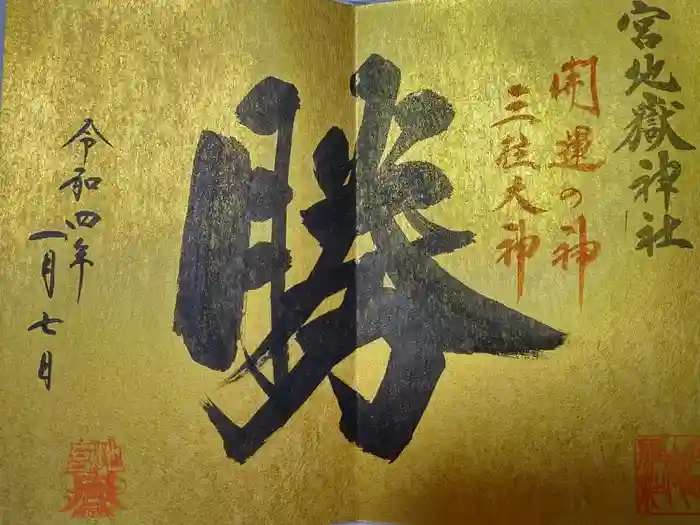 宮地嶽神社
開運の神
三柱大神
勝
令和四年
一月七日